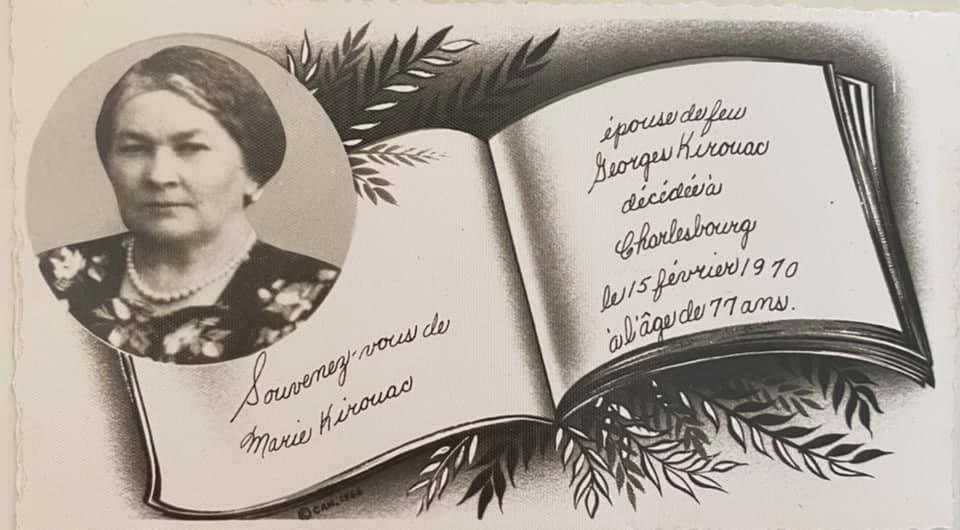 Souvenez-vous de
Marie Kirouac
épouse de feu
Georges Kirouac
décédée à
Charlesbourg
le 15 février 1970
à l'âge de 77 ans.
© CAN. 1966